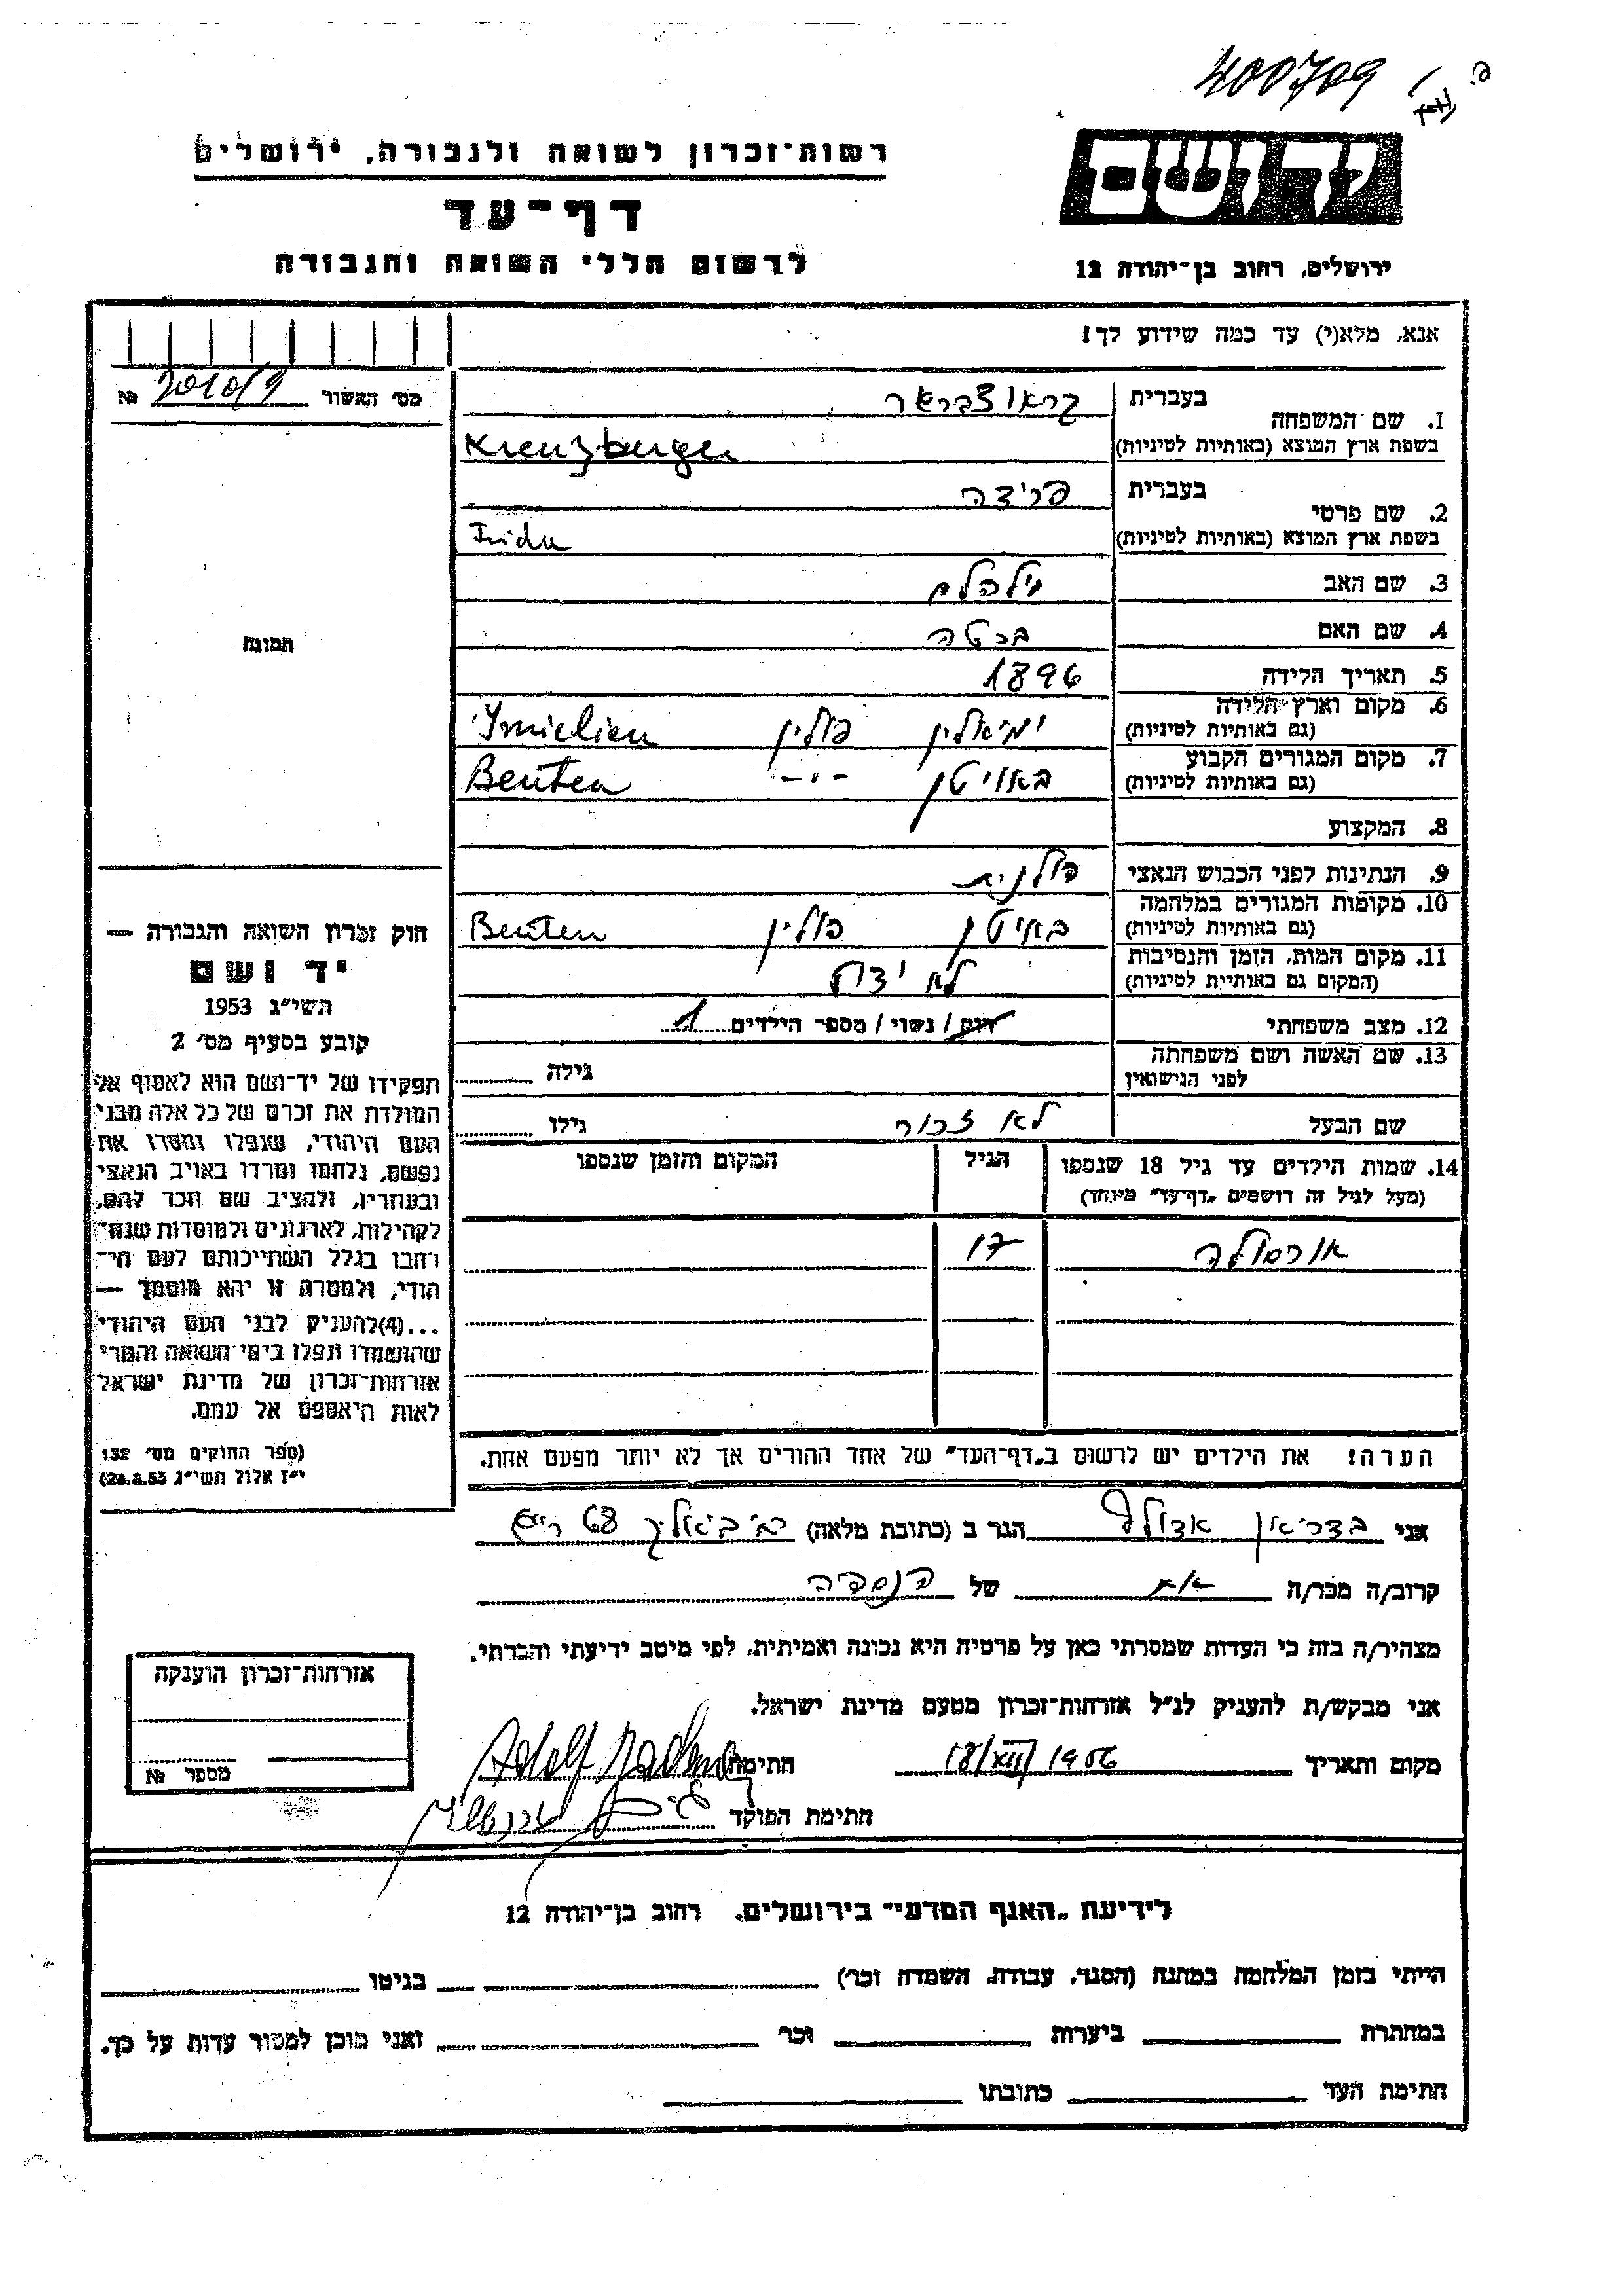 400709
רשות־זכרון לשואה ולגבורה, ירושלים
דף־עד
לרשום חללי השואה והגבורה
יד ושם
ירושלים, רחוב בן־יהודה 12
אנא, מלא(י) עד כמה שידוע לך!
מס' האשור 2010/9 №
1. שם המשפחה בעברית
בשפת ארץ המוצא (באותיות לטיניות) Kreuzberger
2. שם פרטי בעברית פרידה
בשפת ארץ המוצא (באותיות לטיניות) Frida
3. שם האב וילהלם
4. שם האם ברטה
5. תאריך הלידה 1896
6. מקום וארץ הלידה
(גם באותיות לטיניות) ימיאלין פולין Imielien
7. מקום המגורים הקבוע
(גם באותיות לטיניות) באויטן -"- Beuten
8. המקצוע
9. הנתינות לפני הכבוש הנאצי פולנית
10. מקומות המגורים במלחמה
(גם באותיות לטיניות) פולין Beuten
11. מקום המות, הזמן והנסיבות
(המקום גם באותיות לטיניות) לא ידוע
12. מצב משפחתי רווק / נשוי / מספר הילדים 1
13. שם האשה ושם משפחתה
לפני הנישואין גילה
שם הבעל לא זכור גילו
14. שמות הילדים עד גיל 18 שנספו
(מעל לגיל זה רושמים „דף־עד" מיוחד)
הגיל
המקום והזמן שנספו
אורסולה 17
הערה: את הילדים יש לרשום ב„דף־העד" של אחד ההורים אך לא יותר מפעם אחת.
תמונה
חוק זכרון השואה והגבורה —
יד ושם
תשי"ג 1953
קובע בסעיף מס' 2
תפקידו של יד־ושם הוא לאסוף אל
המולדת את זכרם של כל אלה מבני
העם היהודי, שנפלו ומסרו את
נפשם, נלחמו ומרדו באויב הנאצי
ובעוזריו, ולהציב שם וזכר להם,
לקהילות, לארגונים ולמוסדות שנח־
רבו בגלל השתייכותם לעם הי־
הודי, ולמטרה זו יהא מוסמך —
...(4)להעניק לבני העם היהודי
שהושמדו ונפלו בימי השואה והמרי
אזרחות־זכרון של מדינת ישראל
לאות היאספם אל עמם.
(ספר החוקים מס' 132
י"ז אלול תשי"ג 28.8.53)
אני אדולף הגר ב (כתובת מלאה) 68
קרוב/ה מכר/ה אח של הנספה
מצהיר/ה בזה כי העדות שמסרתי כאן על פרטיה היא נכונה ואמיתית, לפי מיטב ידיעתי והכרתי.
אני מבקש/ת להעניק לנ"ל אזרחות־זכרון מטעם מדינת ישראל.
מקום ותאריך 18/XII/1956 חתימה Adolf
חתימת הפוקד
אזרחות־זכרון הוענקה
מספר №
לידיעת „האגף המדעי" בירושלים, רחוב בן־יהודה 12
הייתי בזמן המלחמה במחנה (הסגר, עבודה, השמדה וכו') בגיטו
במחתרת ביערות וכו' ואני מוכן למסור עדות על כך.
חתימת העד כתובתו